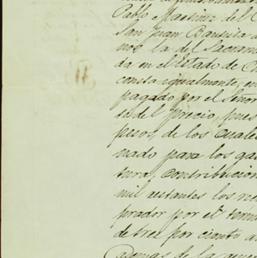 Pablo Martinez del C
San Juan Bautista
no la del Sacram
da en el Estado de C
consta igualmente, en
pagado por el Señor
del precio, pues
pesos, de los cuales
nado para los gas
turo, contribucion
mil restantes los re
prador por el term
de tres por ciento a
Ademas de la